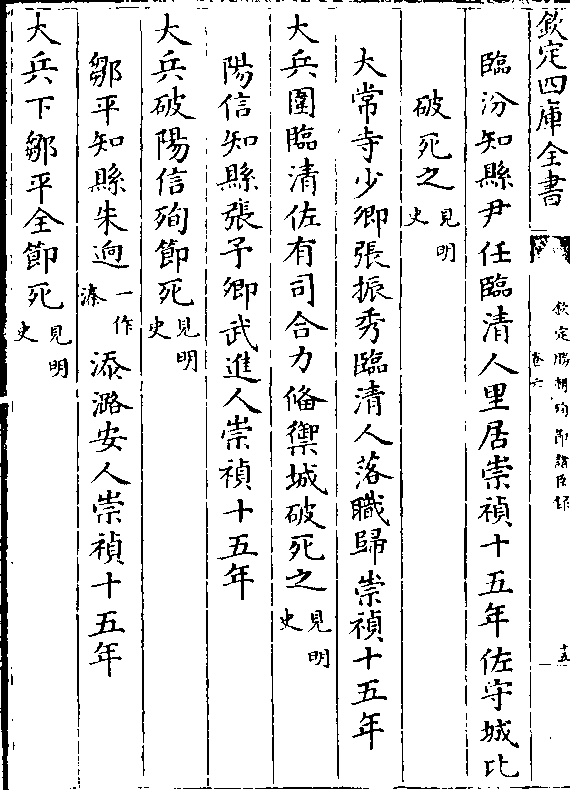 欽定四庫全書
欽定勝朝殉節諸臣錄
卷六
十五
臨汾知縣尹任臨清人里居崇禎十五年佐守城比
破死之見明史
大常寺少卿張振秀臨清人落職歸崇禎十五年
大兵圍臨清佐有司合力偹禦城破死之見明史
陽信知縣張予卿武進人崇禎十五年
大兵破陽信殉節死見明史
鄒平知縣朱逈一作溱添潞安人崇禎十五年
大兵下鄒平全節死見明史